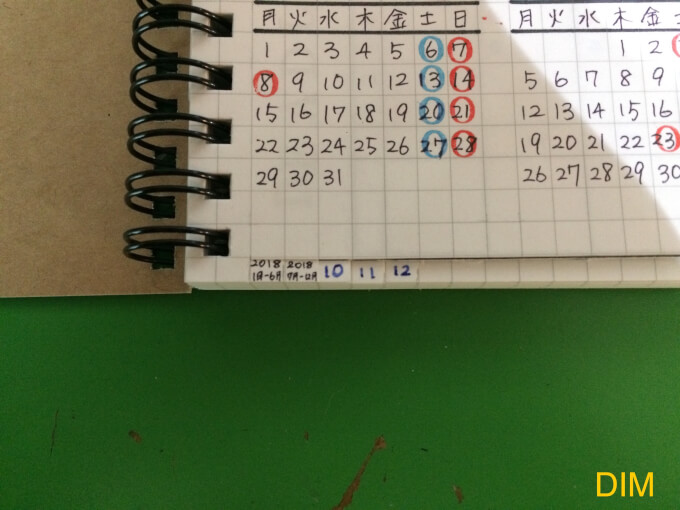 月 火 水 木 金 土 日
1 2 3 4 5 6 7
8 9 10 11 12 13 14
15 16 17 18 19 20 21
22 23 24 25 26 27 28
29 30 31
月 火 水 木 金 土
1 2
5 6 7 8 9
12 13 14 15 16
19 20 21 22 23
26 27 28 29 30
2018 2018
1月-6月 7月-12月 10 11 12
DIM